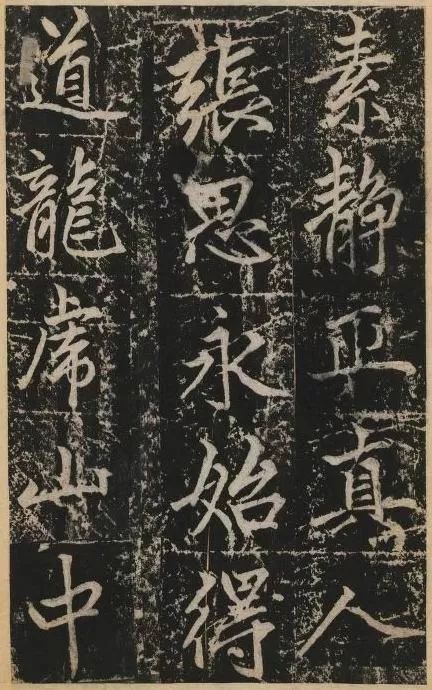 素静正真人
張思永始得
道龍虎山中